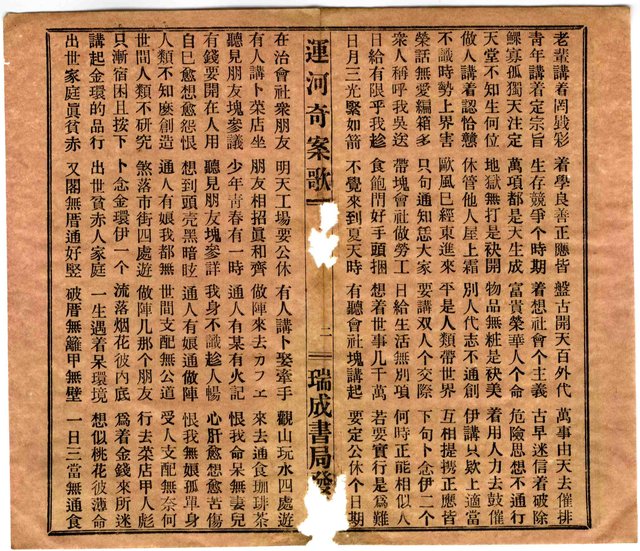 老輩講着罔戥彩 着學良善正應皆 盤古開天百外代 萬事由天去催排
青年講着定宗旨 生存競爭个時期 着想社會个主義 古早迷信着破除
鰥寡孤獨天注定 萬項都是天生成 富貴榮華人个命 危險思想不通行
天堂不知生何位 地獄無打是袂開 物品無粧是袂美 着用人力去鼓催
做人講着認恰戇 休管他人屋上霜 別人代志不通創 伊講只欵上適當
不識時勢上界害 歐風已經東進來 平是人類帶世界 互相提携正應皆
榮話無愛編箱多 只句通知恁大家 要講双人个交際 下句卜念伊二个
衆人稱呼我吳送 帶塊會社做勞工 日給生活無別項 何時正能相似人
日給有限乎我趁 食飽閒好手頭捆 想着世事几千萬 若要實行是爲難
日月三光緊如箭 不覺來到夏天時 有聽會社塊講起 要定公休个日期
運河奇案歌 二 瑞成書局發
在治會社衆朋友 明天工場要公休 有人講卜娶牽手 觀山玩水四處遊
有人講卜菜店坐 朋友相招眞和齊 做陣來去カフヱ 來去通食珈琲茶
聽見朋友塊參議 少年靑春有一時 通人有某有火記 恨我命呆無妻兒
有錢要開在人用 聽見朋友塊參詳 我身不識趁人暢 心肝愈想愈苦傷
自已愈想愈怨恨 想到頭壳黑暗眩 通人有娘通做陣 恨我無娘孤單身
人類不知麽創造 通人有娘我都無 世間支配無公道 受人支配無奈何
世間人類不研究 煞落市街四處遊 做陣几那个朋友 行去菜店甲人彪
只漸宿困且按下 卜念金環伊一个 流落烟花彼內底 爲着金錢來所迷
講起金環的品行 出世貧赤人家庭 一生遇着呆環境 想似桃花彼薄命
出世家庭眞貧赤 又閣無厝通好竪 破厝無籬甲無壁 一日三當無通食